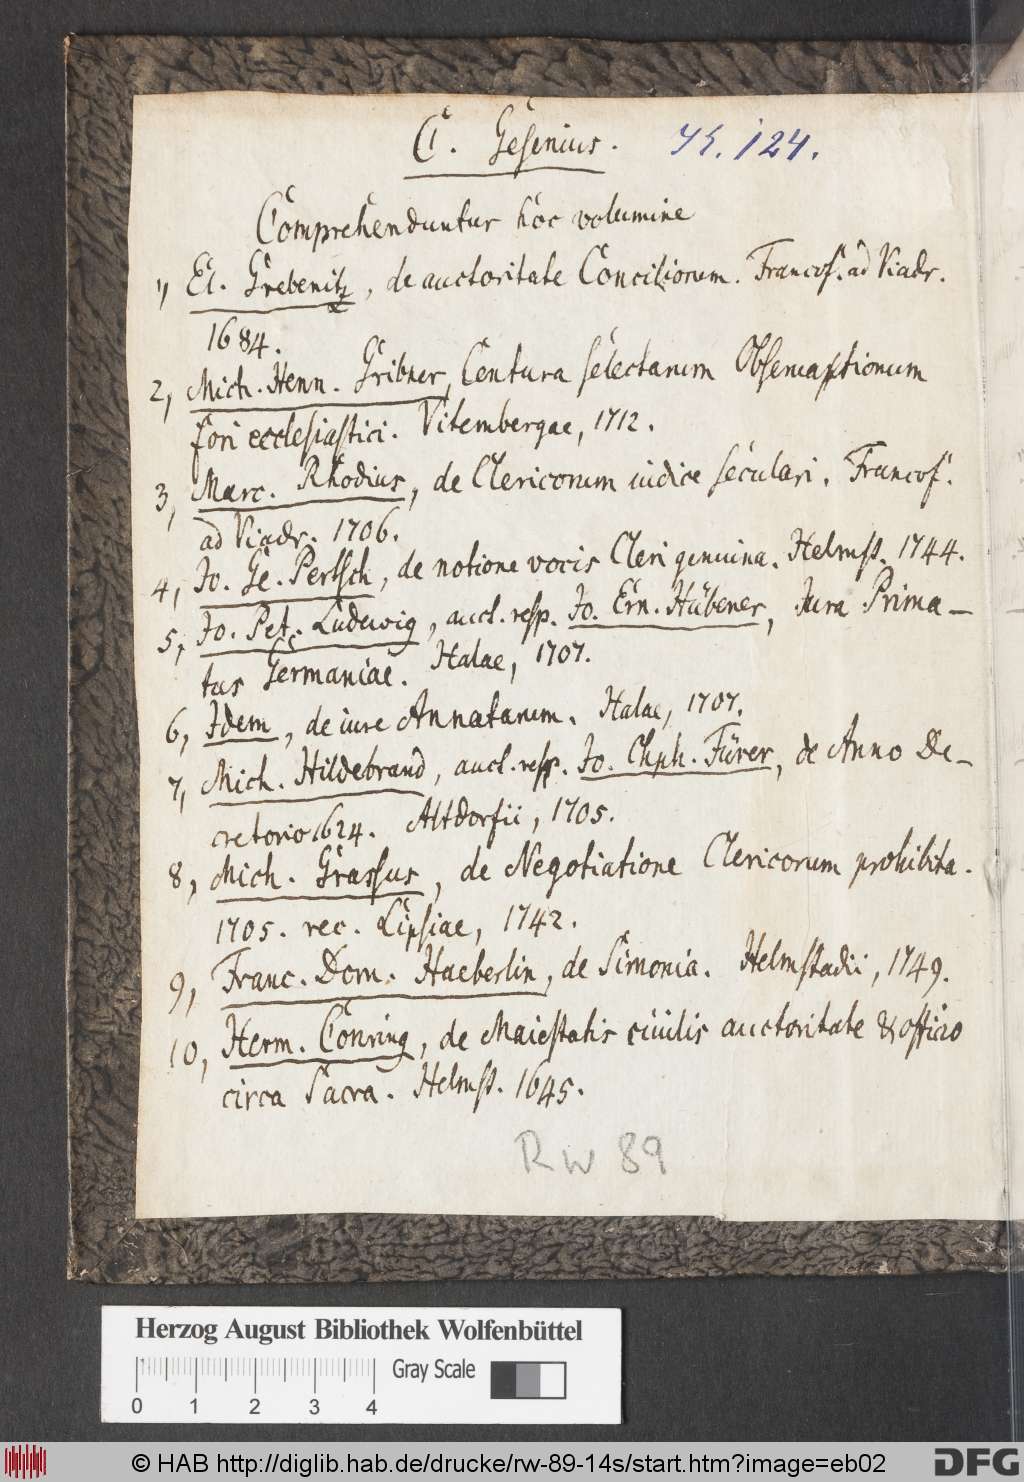 C. Gesenius.
124.
Comprehenduntur hoc volumine
1, El. Grebenitz, de auctoritate Conciliorum. Francof. ad Viadr.
1684.
2, Mich. Henn. Gribner, Centura selectarum Observaptionum
fori ecclesiastici. Vitembergae, 1712.
3, Marc. Rhodius, de Clericorum iudice seculari. Francof.
ad Viadr. 1706.
4, Jo. Ge. Pertsch, de notione vocis Cleri genuina. Helmst. 1744.
5, Jo. Pet. Ludewig, auct. resp. Jo. Ern. Hübener, Jura Prima-
tus Germaniae. Halae, 1707.
6, Idem, de iure Annatarum. Halae, 1707.
7, Mich. Hildebrand, auct. resp. Jo. Chph. Fürer, de Anno De-
cretorio 1624. Altdorfii, 1705.
8, Mich. Grassus, de Negotiatione Clericorum prohibita.
1705. rec. Lipsiae, 1742.
9, Franc. Dom. Haeberlin, de Simonia. Helmstadii, 1749.
10, Herm. Conring, de Maiestatis civilis auctoritate & officio
circa Sacra. Helmst. 1645.
Rw 89
Herzog August Bibliothek Wolfenbüttel
Gray Scale
0 1 2 3 4
© HAB http://diglib.hab.de/drucke/rw-89-14s/start.htm?image=eb02
DFG